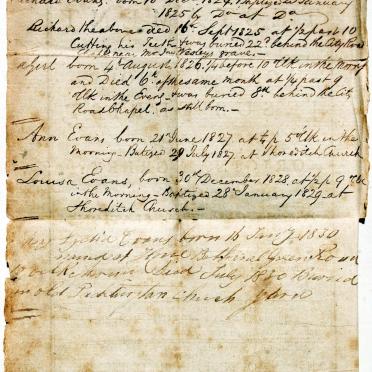 Evans. born 10 Dec. 1824. Baptized January
1825 by Do at Do.
Richard the above died 16th Sept 1825 at ½ past 10
Cutting his Teeth & was buried 22d behind the City Road
Wesleys grave.
a girl born 4th August 1826. ¼ before 10 Clk in the Morng
and Died 6th of the same month at ¼ past 9
Clk in the Eveng & was buried 8th behind the Cit.
Road Chapel. as still born.
Ann Evans, born 21st June 1827 at ½ p 5 Clk in the
Morning. Batized 29 July 1827. at Shoreditch Church
Louisa Evans, born 30th December 1828. at ½ p 9 Clk
in the Morning. Baptized 28th January 1829. at
Shoreditch Church.
Lydia Evans born 16 1830
at Bethnal Green Road
Died July 1830 Buried
in old Church